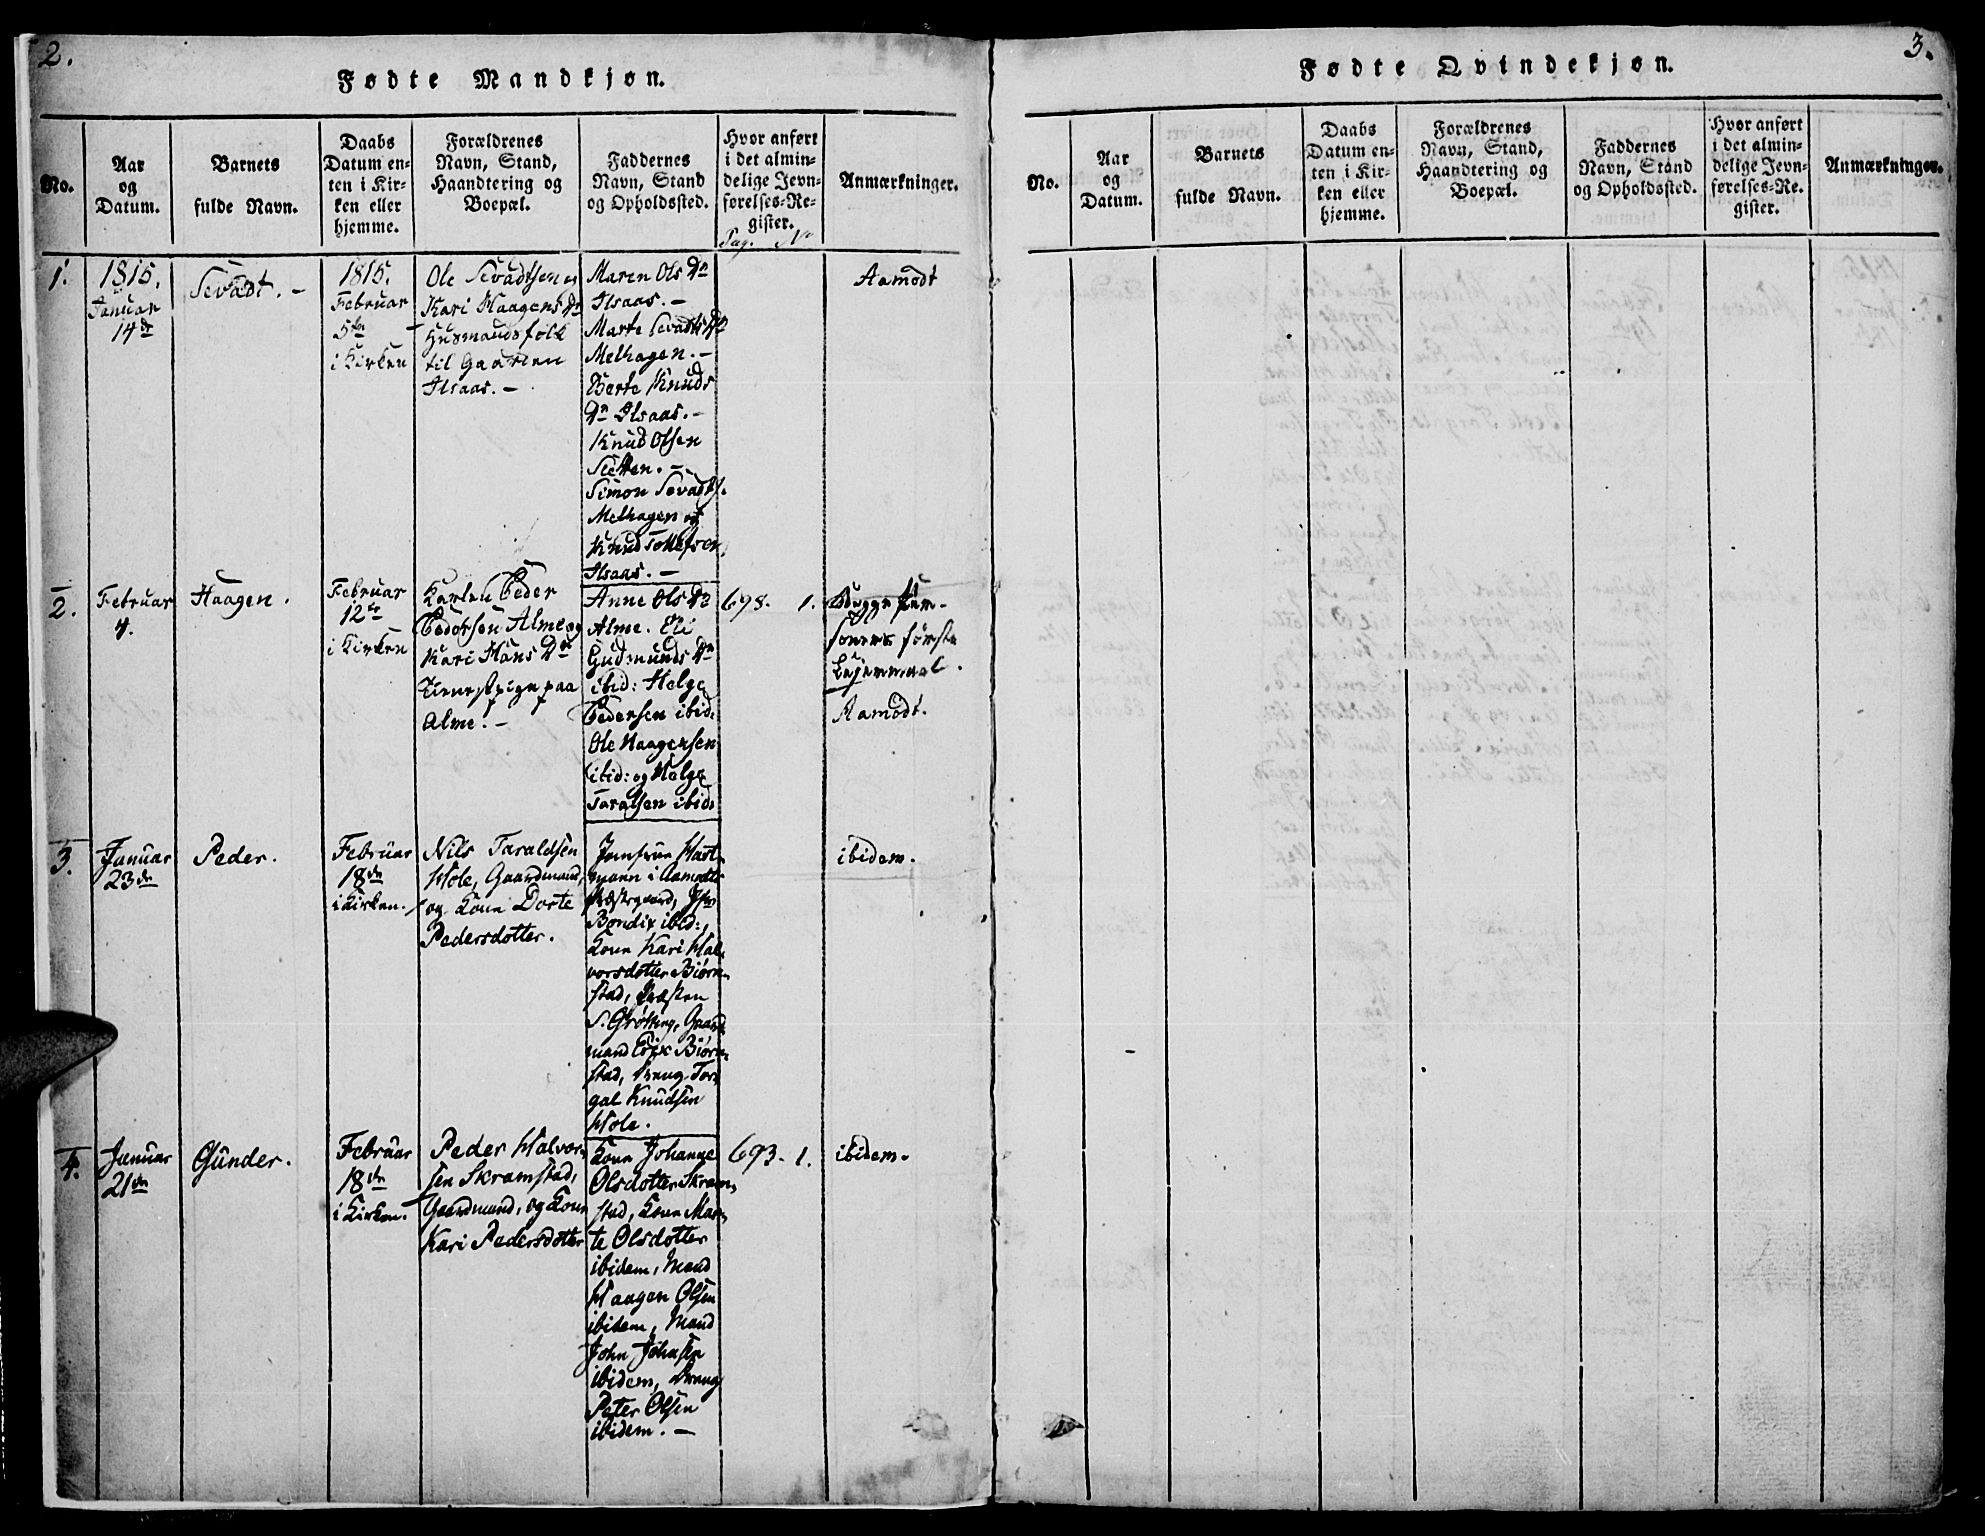 2.
Fødte Mandkjøn.
No.
Aar
og
Datum.
Barnets
fulde Navn.
Daabs
Datum en-
ten i Kir-
ken eller
hjemme.
Forældrenes
Navn, Stand,
Haandtering og
Boepæl.
Faddernes
Navn, Stand
og Opholdssted.
Hvor anført
i det almin-
delige Jevn-
førelses-Re-
gister.
Pag. No
Anmærkninger.
1.
1815.
Januar
14de
Sevadt. -
1815.
Februar
5te
i Kirken
Ole Sevadtsen
Kari Haagens Dn
Husmandsfolk
til Gaarden
Ilsaas. -
Maren Ols Dn
Ilsaas. -
Marte Sevadts Dn
Melhagen. -
Berte Knuds
Dn Ilsaas. -
Knud Olsen
Sletten. -
Simon Sevadts.
Melhagen og
Knud Tollefsen
Ilsaas. -
Aamodt
2.
Februar
4.
Haagen.
Februar
12te
i Kirken
Karlen Peder
Pedersen Alme og
Kari Hans Dn
Tienestpige paa
Alme. -
Anne Ols Dn
Alme. Eli
Gudmunds Dn
ibid: Helge
Pedersen ibid:
Ole Haagensen
ibid: og Helge
Taralsen ibid:
698. 1.
Begge
første
Lejermaal.
Aamodt.
3.
Januar
23de
Peder.
Februar
18de
i Kirken.
Nils Taraldsen
Hole, Gaardmand,
og Kone Dorte
Pedersdotter.
Jomfrue Hart-
mann i Aamodts
Præstegaard,
Bendix ibid:,
Kone Kari Hal-
vorsdotter Biørn-
stad, Præsten
S. Grøtting, Gaard-
mand Erik Biørn-
stad, Dreng Tor-
gal Knudsen
Hole.
ibidem.
4.
Januar
21de
Gunder.
Februar
18de
i Kirken.
Peder Halvor-
sen Skramstad,
Gaardmand, og Kone
Kari Pedersdotter
Kone Johanne
Olsdotter Skram-
stad, Kone Mar-
te Olsdotter
ibidem, Mand
Haagen Olsen
ibidem, Mand
John Johnsen
ibidem, Dreng
Peter Olsen
ibidem. -
693. 1.
ibidem.
3.
Fødte Qvindekjøn.
No.
Aar
og
Datum.
Barnets
fulde Navn.
Daabs
Datum en-
ten i Kir-
ken eller
hjemme.
Forældrenes
Navn, Stand,
Haandtering og
Boepæl.
Faddernes
Navn, Stand
og Opholdssted.
Hvor anført
i det almin-
delige Jevn-
førelses-Re-
gister.
Anmærkninger.